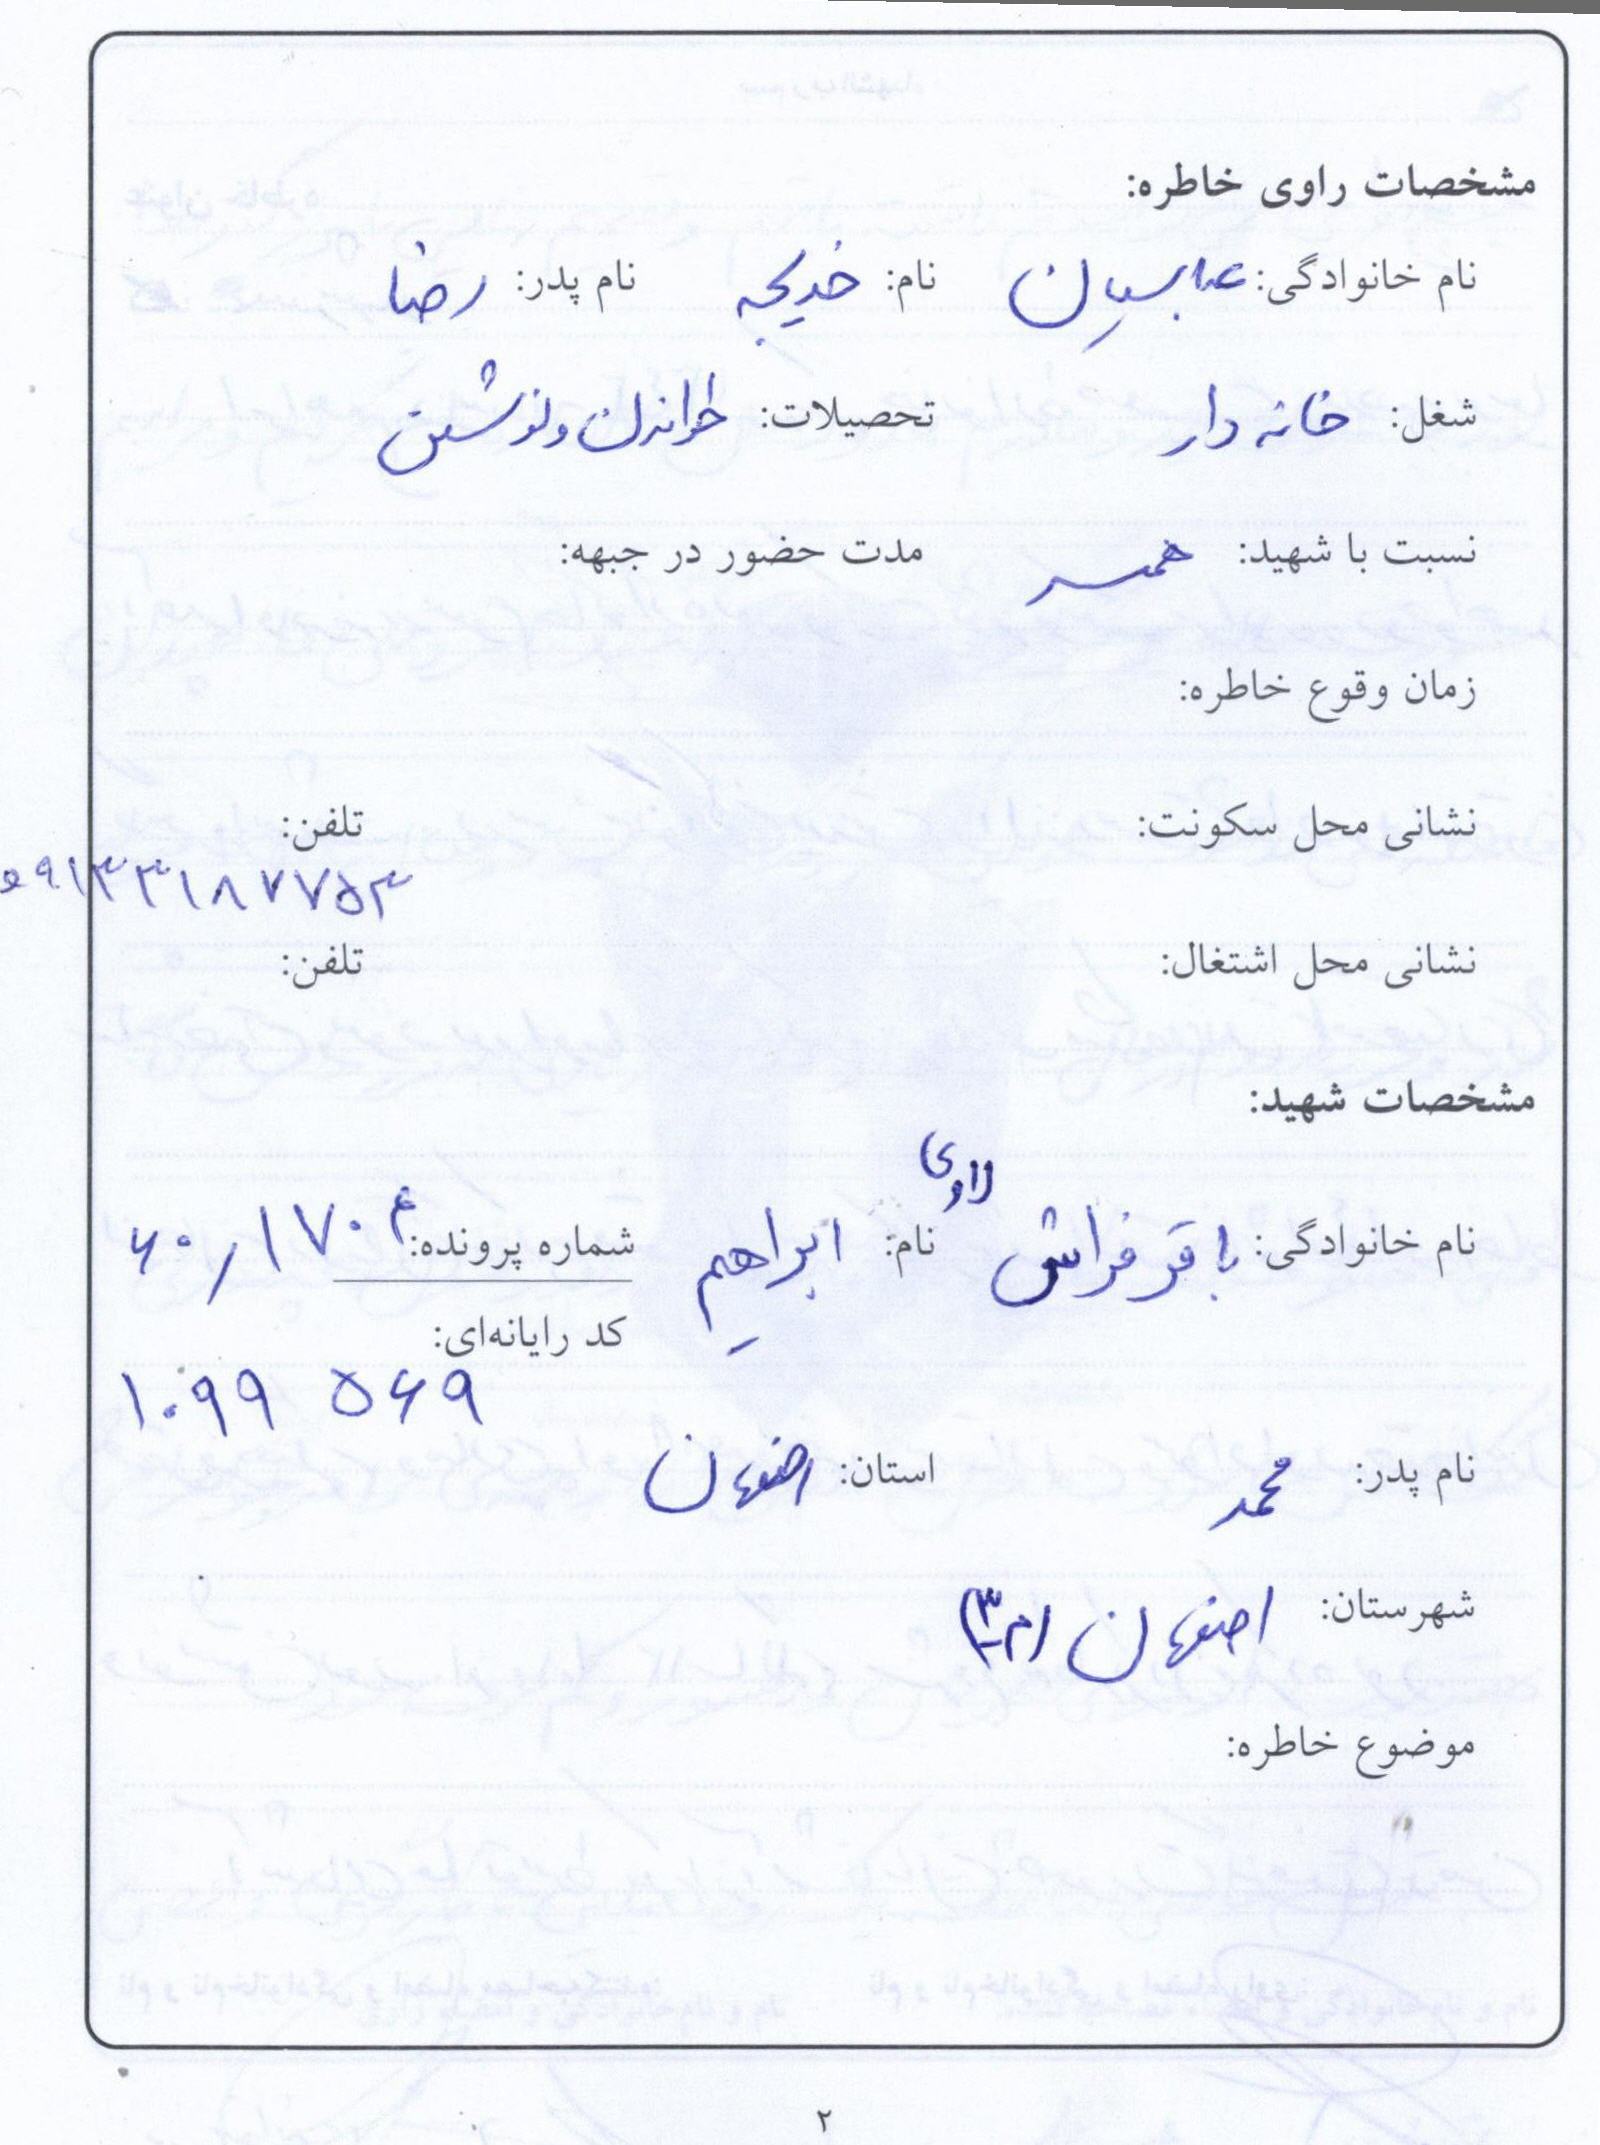 مشخصات راوی خاطره:
نام خانوادگی: عباسیان نام: خدیجه نام پدر: رضا
شغل: خانه دار تحصیلات: خواندن و نوشتن
نسبت با شهید: همسر مدت حضور در جبهه:
زمان وقوع خاطره:
نشانی محل سکونت: تلفن:
۰۹۱۳۳۱۸۷۷۵۳
نشانی محل اشتغال: تلفن:
مشخصات شهید:
نام خانوادگی: باقر فراش راوی نام: ابراهیم شماره پرونده: ۶۰/۱۷۰۴
کد رایانه‌ای:
۱۰۹۹ ۵۶۹
نام پدر: محمد استان: اصفهان
شهرستان: اصفهان (م۳)
موضوع خاطره:
۲